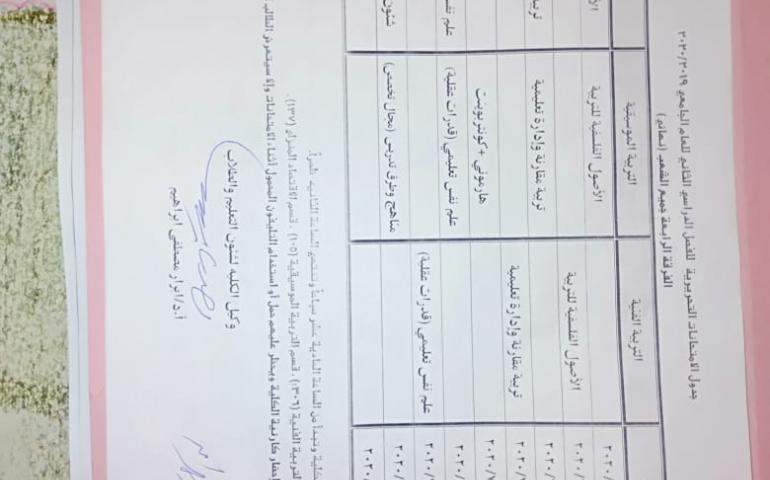 جدول الامتحانات التحريرية للفصل الدراسي الثاني للعام الجامعي ٢٠٢٠/٢٠١٩
الفرقة الرابعة جميع الشعب (نهائي)
التربية الموسيقية
التربية الفنية
الأصول الفلسفية للتربية
٢٠٢٠/
الأصول الفلسفية للتربية
٢٠٢٠/
تربية مقارنة وإدارة تعليمية
٢٠٢٠/
تربية مقارنة وإدارة تعليمية
٢٠٢٠/
هارموني + كونتربوينت
٢٠٢٠/
علم نفس
علم نفس تعليمي (قدرات عقلية)
٢٠٢٠/
علم نفس تعليمي (قدرات عقلية)
٢٠٢٠/
شئون
مناهج وطرق تدريس (مجال تخصص)
٢٠٢٠/
٢٠٢٠/
كلية وتبدأ من الساعة الحادية عشر صباحاً وتنتهي الساعة الثانية ظهراً.
لتربية الفنية (٣٠٦)، قسم التربية الموسيقية (١٠٥)، قسم الاقتصاد المنزلي (١٣٧).
إحضار كارنية الكلية ويحظر عليهم حمل أو استخدام التليفون المحمول أثناء الامتحانات وإلا سيتعرض الطالب
وكيل الكلية لشئون التعليم والطلاب
أ.د/ ابراهيم